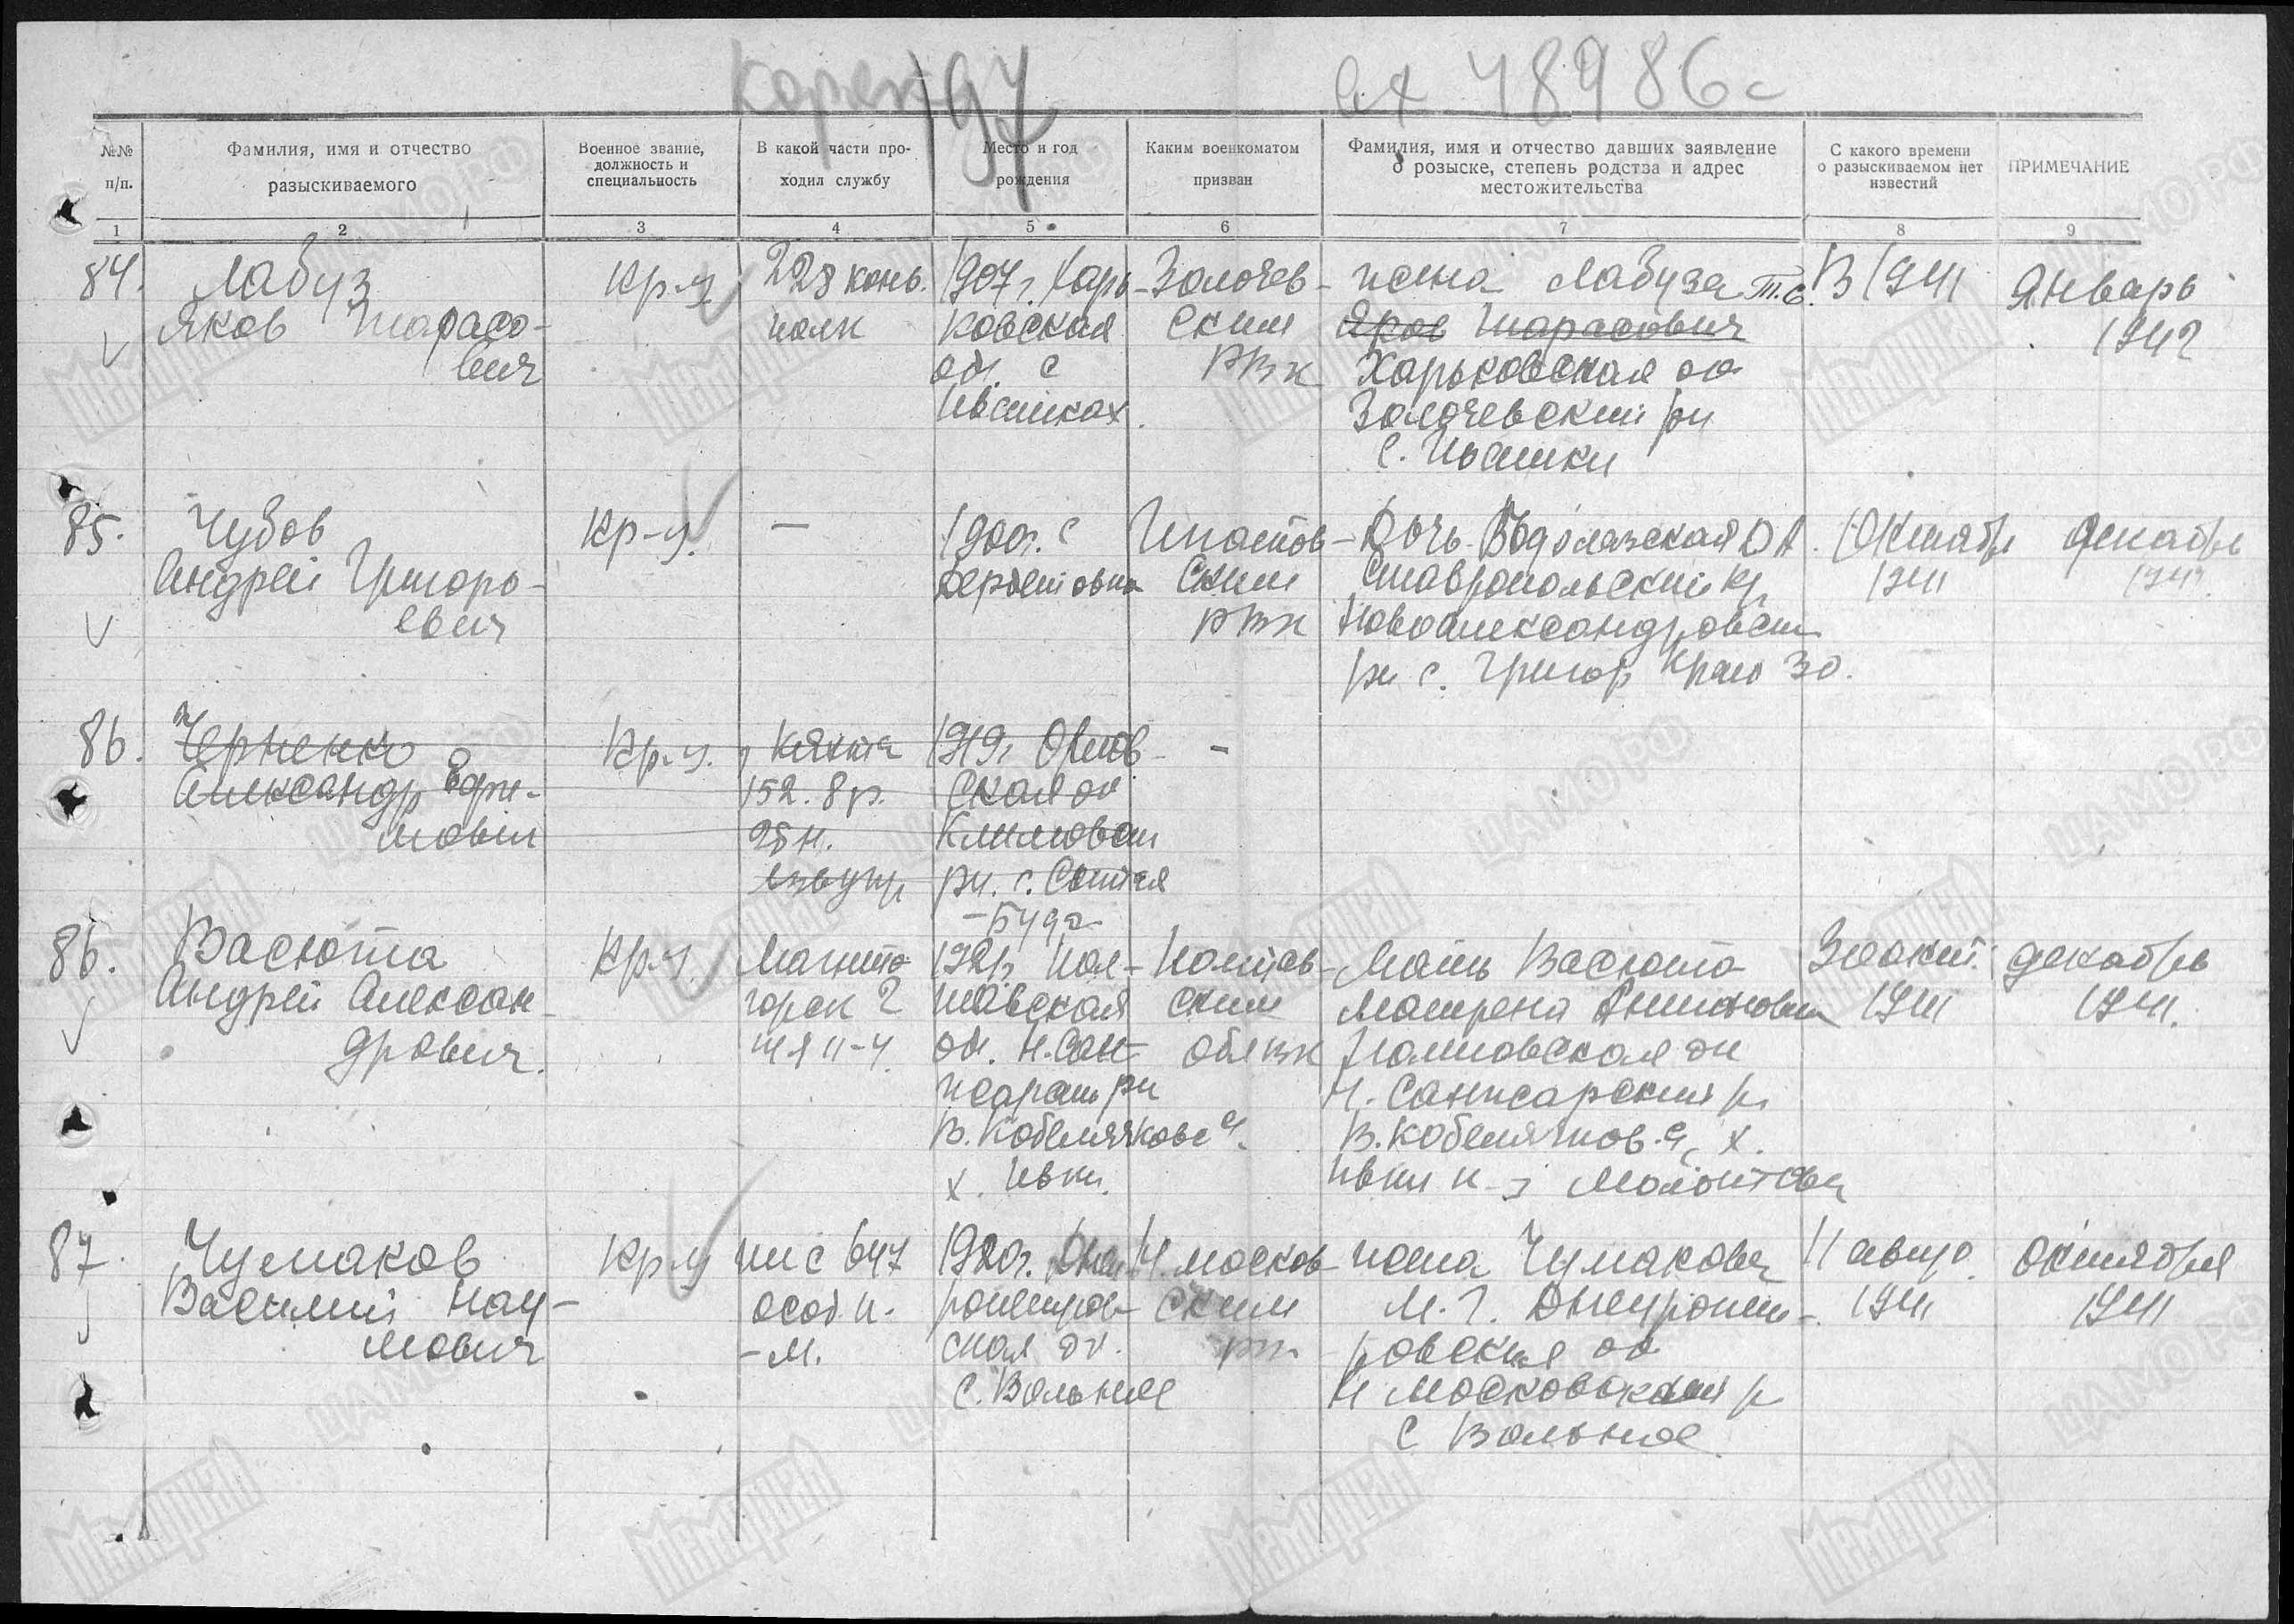 197
вх 48986с
№№ п/п.
Фамилия, имя и отчество
разыскиваемого
Военное звание,
должность и
специальность
В какой части про-
ходил службу
Место и год
рождения
Каким военкоматом
призван
Фамилия, имя и отчество давших заявление
о розыске, степень родства и адрес
местожительства
С какого времени
о разыскиваемом нет
известий
ПРИМЕЧАНИЕ
1 2 3 4 5 6 7 8 9
84.
Лабуз
Яков Тарасо-
вич
кр-ц
228 конь.
полк
1907 г. Харь-
ковская
обл. с
Ивашках
Золочев-
ским
РВК
жена Лабуза Т.С.
Яков Тарасович
Харьковская об
Золочевский рн
с. Ивашки
В 1941
Январь
1942
85.
Чубов
Андрей Григорь-
евич
кр-ц.
—
1900г. с
Ипатов-
ским
РВК
Дочь Водолазская
Ставропольский кр
Новоалександровск
рн с. Григор
30.
Октябрь
1941
декабрь
86.
Черненко
Александр Ефи-
мович
кр-ц.
Кяхта
152.
1919г Орлов-
ская об
Климовск
рн. с.
-Буда
-
86.
Васюта
Андрей Алексан
дрович.
кр-ц
Магнито
горск 2
п-ч
Пол-
тавская
обл. Н. Сан-
жарск рн
В. Кобелячковс
х. Ивки.
Полтав-
ским
обл вк
Мать Васюта
Матрена
Полтавская
Н. Санжарский р.
х.
Ивки
1941
декабрь
1941.
87.
Чумаков
Василий Нау-
мович
кр-ц
ппс 647
-м.
1920г. Днеп
ропетров-
ская об.
с. Вольное
Н. москов-
ским
жена Чумакова
М. Г. Днепропет-
ровская об
Н московский р
с Вольное
11
1941
октября
1941
Мемориал
ЦАМО РФ